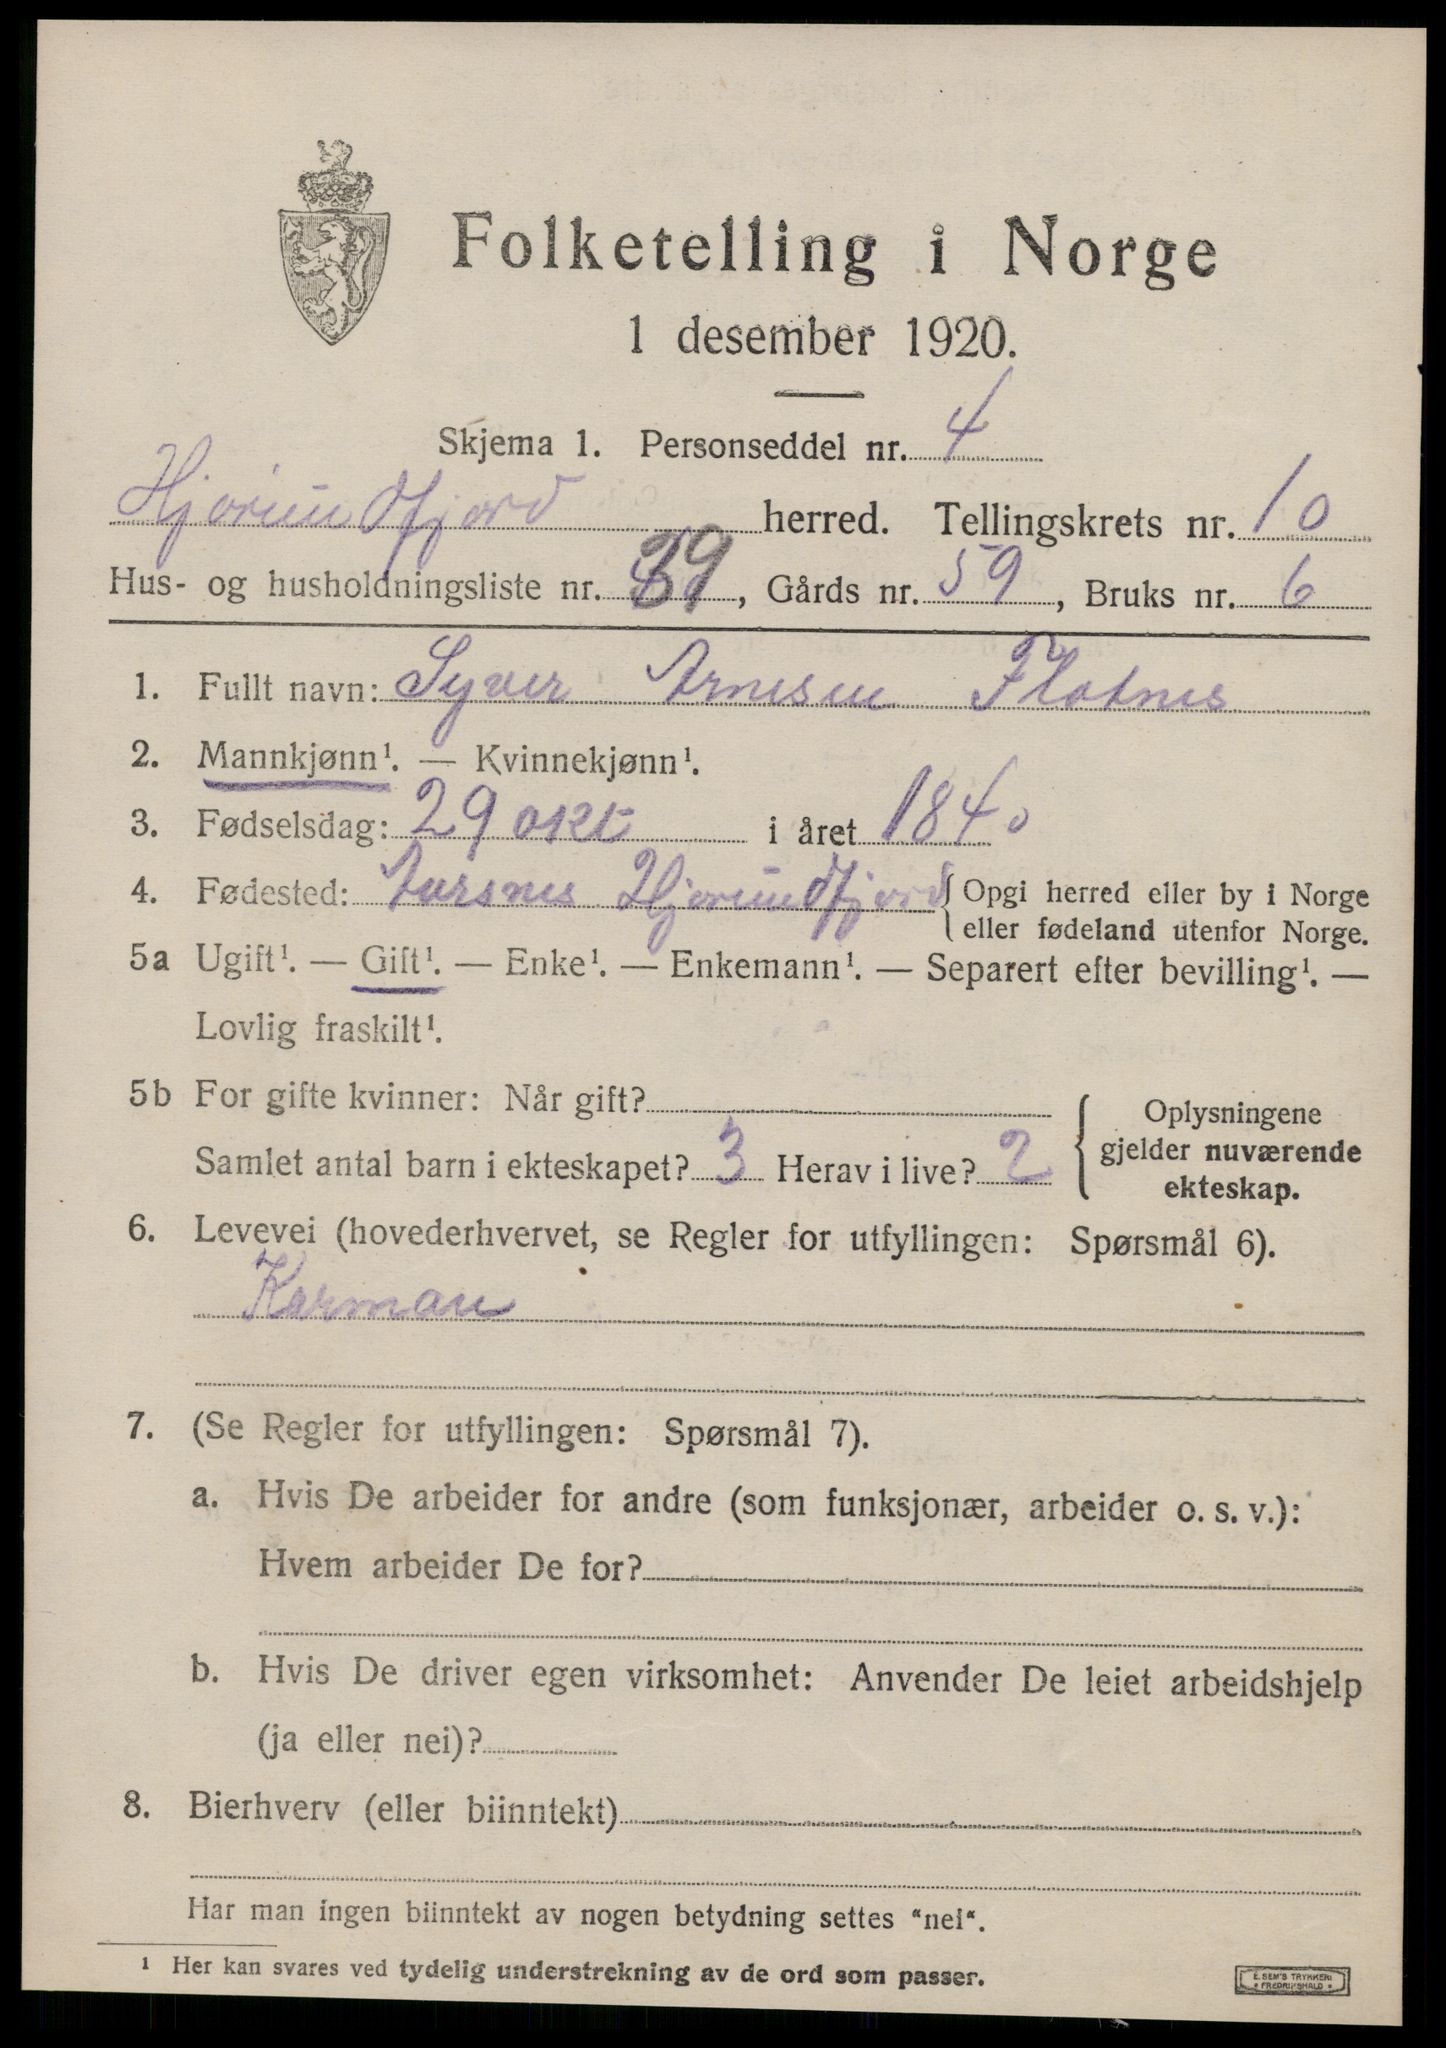 Folketelling i Norge
1 desember 1920.
Skjema 1. Personseddel nr. 4
Hjørundfjord herred. Tellingskrets nr. 10
Hus- og husholdningsliste nr. 39, Gårds nr. 59, Bruks nr. 6
1. Fullt navn: Syver Arnesen Flotnes
2. Mannkjønn¹. — Kvinnekjønn¹.
3. Fødselsdag: 29 okt i året 1840
4. Fødested: Aursnes Hjørundfjord { Opgi herred eller by i Norge
eller fødeland utenfor Norge.
5a Ugift¹. — Gift¹. — Enke¹. — Enkemann¹. — Separert efter bevilling¹. —
Lovlig fraskilt¹.
5b For gifte kvinner: Når gift?
Samlet antal barn i ekteskapet? 3 Herav i live? 2
Oplysningene
gjelder nuværende
ekteskap.
6. Levevei (hovederhvervet, se Regler for utfyllingen: Spørsmål 6).
Karman
7. (Se Regler for utfyllingen: Spørsmål 7).
a. Hvis De arbeider for andre (som funksjonær, arbeider o. s. v.):
Hvem arbeider De for?
b. Hvis De driver egen virksomhet: Anvender De leiet arbeidshjelp
(ja eller nei)?
8. Bierhverv (eller biinntekt)
Har man ingen biinntekt av nogen betydning settes "nei".
¹ Her kan svares ved tydelig understrekning av de ord som passer.
E. SEM'S TRYKKERI
* FREDRIKSHALD *